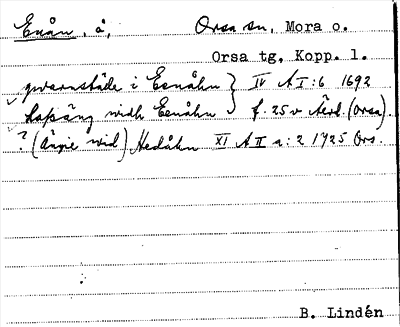 Enån, å, Orsa sn, Mora o.
Orsa tg, Kopp. l.
qwarnställe i Eenåhn } IV A I:6 1692
widh Eenåhn } f. 25 v (Orsa).
? (ängie wid) Hedåhn XI A II a:2 1725 Ors.
B. Lindén